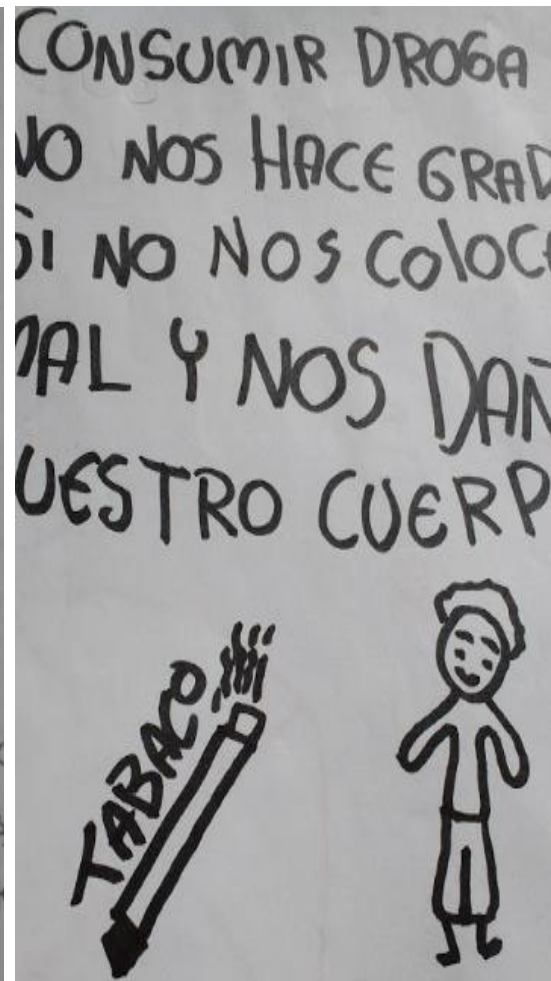 CONSUMIR DROGA
NO NOS HACE GRAD
SI NO NOS COLOC
MAL Y NOS DAÑ
UESTRO CUERP
TABACO